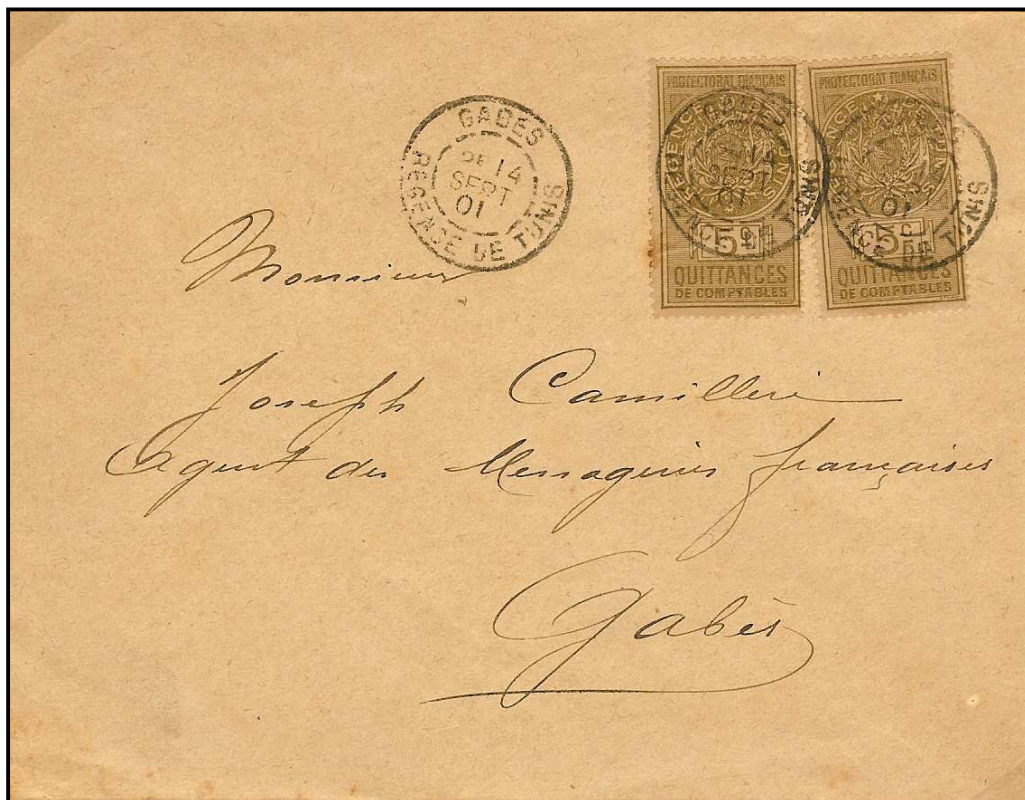 GABES
2E 14
SEPT
01
REGENCE DE TUNIS
PROTECTORAT FRANÇAIS
REGENCE TUNIS
5c
QUITTANCES
DE COMPTABLES
GABES
14
SEPT
01
REGENCE TUNIS
PROTECTORAT FRANÇAIS
REGENCE DE TUNIS
5
QUITTANCES
DE COMPTABLES
01
REGENCE DE TUNIS
Monsieur
Joseph Camilleri
Agent des Messageries françaises
Gabès